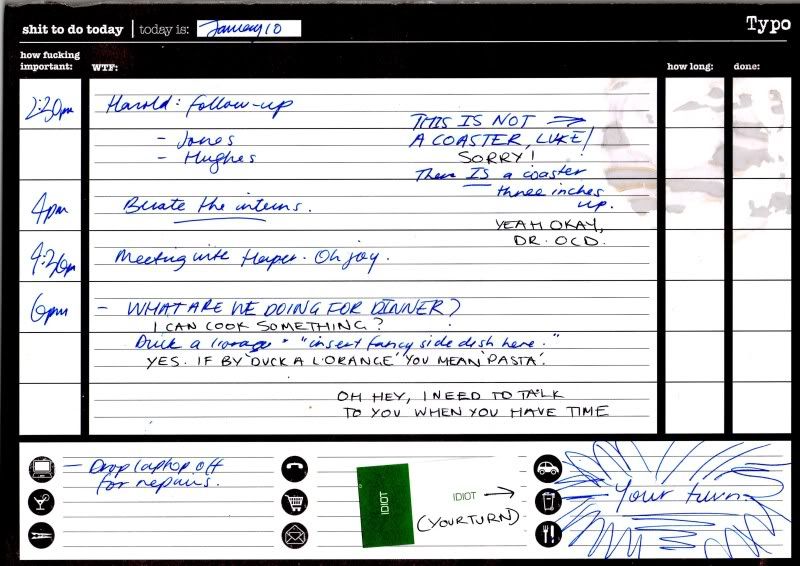 shit to do today today is: January 10 Typo
how fucking important: WTF: how long: done:
2:30pm Harold: follow-up
- Jones
- Hughes
THIS IS NOT →
A COASTER, LUKE!
SORRY!
There IS a coaster
three inches
up.
YEAH OKAY,
DR. OCD.
4pm Berate the interns.
4:30pm Meeting with Harper. Oh joy.
6pm - WHAT ARE WE DOING FOR DINNER?
I CAN COOK SOMETHING?
Duck a l'orange + "insert fancy side dish here."
YES. IF BY 'DUCK A L'ORANGE' YOU MEAN 'PASTA'.
OH HEY, I NEED TO TALK
TO YOU WHEN YOU HAVE TIME
- Drop laptop off
for repairs.
IDIOT
IDIOT →
(YOUR TURN)
Your turn